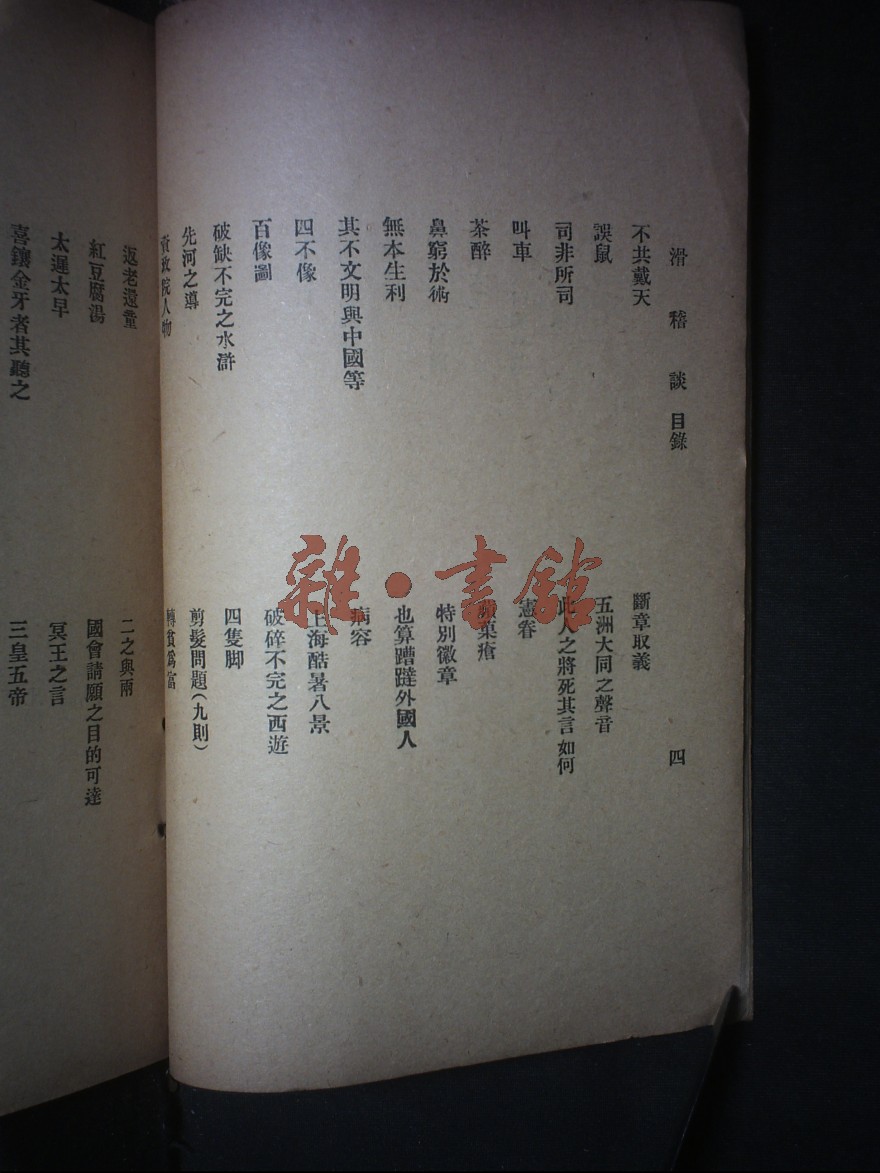 滑稽談 目錄 四
不共戴天
斷章取義
誤鼠
五洲大同之聲音
司非所司
此人之將死其言如何
叫車
憲眷
茶醉
菓瘡
鼻窮於術
特別徽章
無本生利
也算蹧躂外國人
其不文明與中國等
病容
四不像
上海酷暑八景
百像圖
破碎不完之西遊
破缺不完之水滸
四隻脚
先河之導
剪髮問題(九則)
資政院人物
轉貧爲富
返老還童
二之與兩
紅豆腐湯
國會請願之目的可達
太遲太早
冥王之言
喜鑲金牙者其聽之
三皇五帝
雜·書館